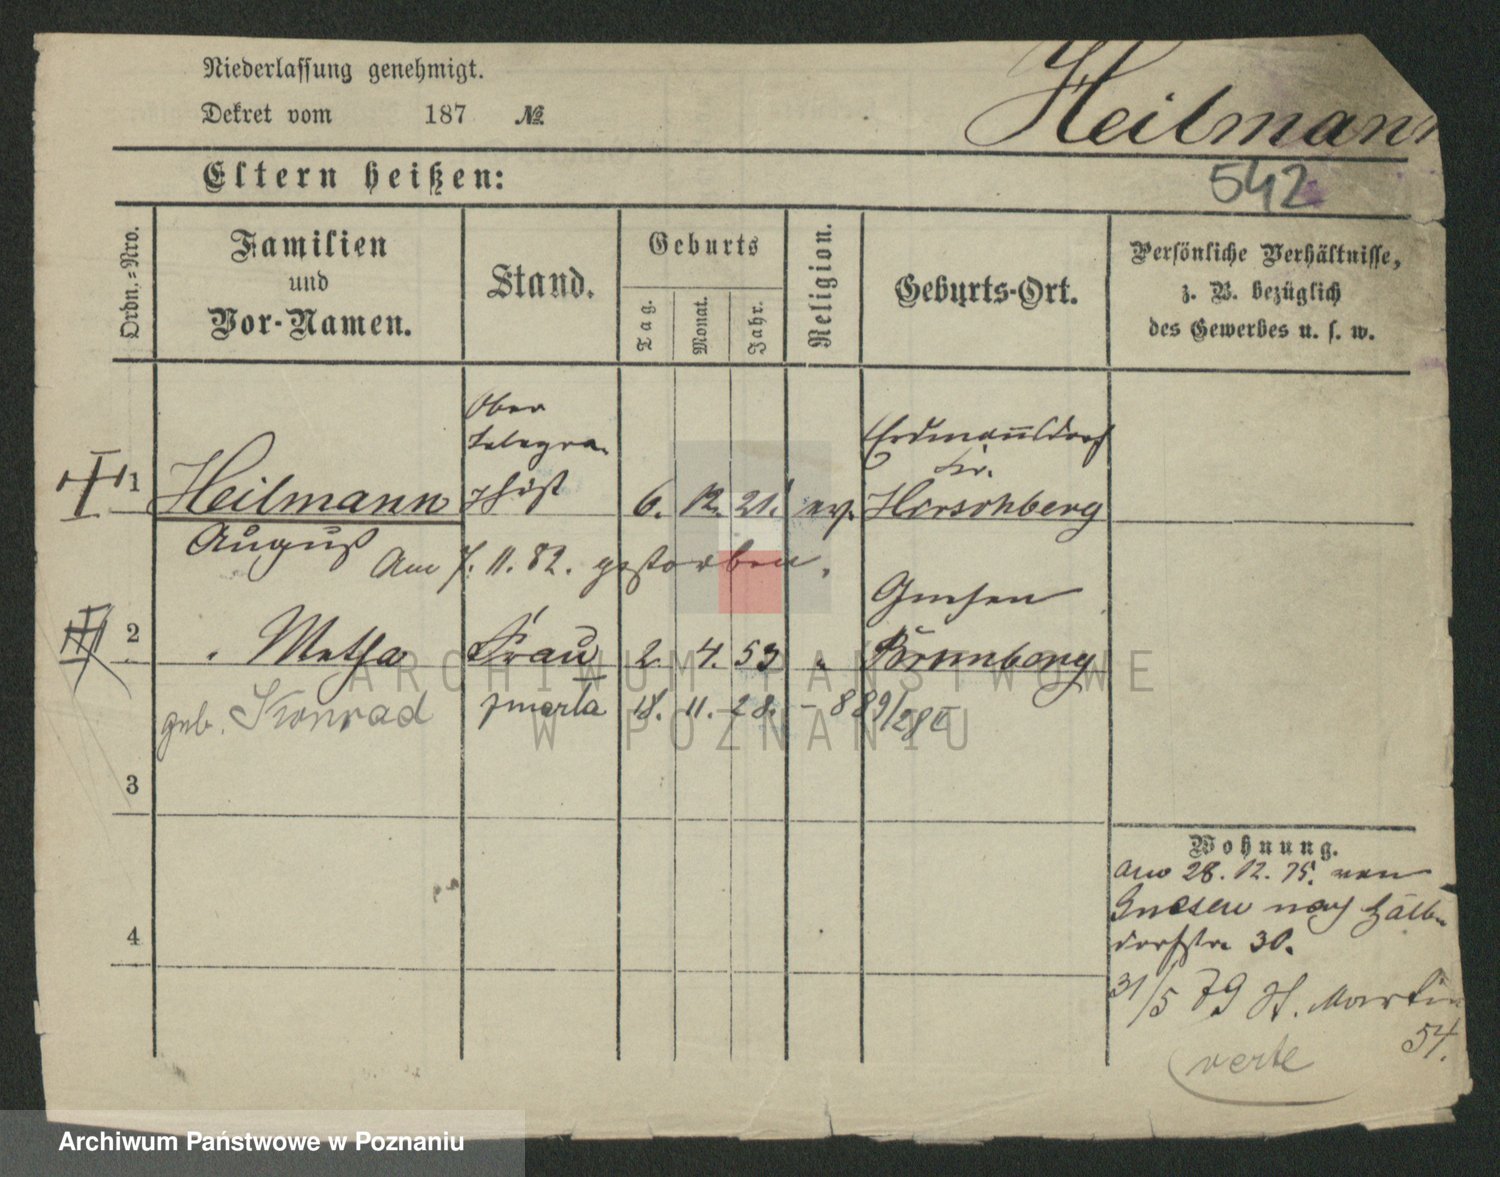 Niederlassung genehmigt.
Dekret vom 187 №
Heilmann
Eltern heißen:
542
Ordn.-Nro.
Familien
und
Vor-Namen.
Stand.
Geburts
Tag.
Monat.
Jahr.
Religion.
Geburts-Ort.
Persönliche Verhältnisse,
z. B. bezüglich
des Gewerbes u. s. w.
Ober
telegra-
phist
Erdmannsdorf
Kr.
1 Heilmann 6. 12. 21. ev. Hirschberg
August
Am 7. 11. 82. gestorben.
Gnesen
2 Frau 2. 4. 53 " Bromberg
geb. Konrad zmarła 18. 11. 28. - 889/28
3
4
Wohnung.
am 28. 12. 75. von
Gnesen nach Halb-
dorfstr. 30.
31/5 79 St. Martin
54.
verte
ARCHIWUM PAŃSTWOWE
W POZNANIU
Archiwum Państwowe w Poznaniu